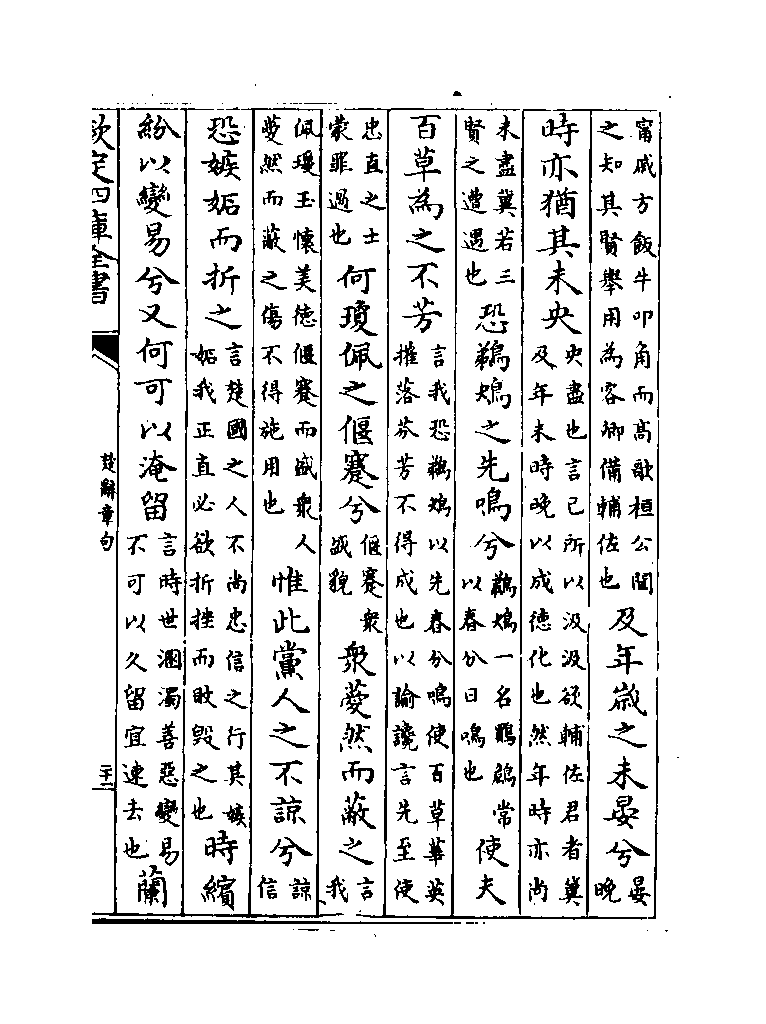 甯戚方飯牛叩角而高歌桓公聞
之知其賢舉用為客卿備輔佐也
及年歲之未晏兮
晏
晚
時亦猶其未央
央盡也言已所以汲汲欲輔佐君者冀
及年未時晚以成德化也然年時亦尚
未盡冀若三
賢之遭遇也
恐鵜鴂之先鳴兮
鵜鴂一名常
以春分日鳴也
使夫
百草為之不芳
言我恐鵜鴂以先春分鳴使百草華英
摧落芬芳不得成也以諭讒言先至使
忠直之士
蒙罪過也
何瓊佩之偃蹇兮
偃蹇衆
盛貌
衆薆然而蔽之
言
我
佩瓊玉懷美徳偃蹇而盛衆人
薆然而蔽之傷不得施用也
惟此黨人之不諒兮
諒
信
恐嫉妬而折之
言楚國之人不尚忠信之行其嫉
妬我正直必欲折挫而敗毁之也
時繽
紛以變易兮又何可以淹留
言時世溷濁善惡變易
不可以久留宜速去也
蘭
欽定四庫全書
楚辭章句
二十二